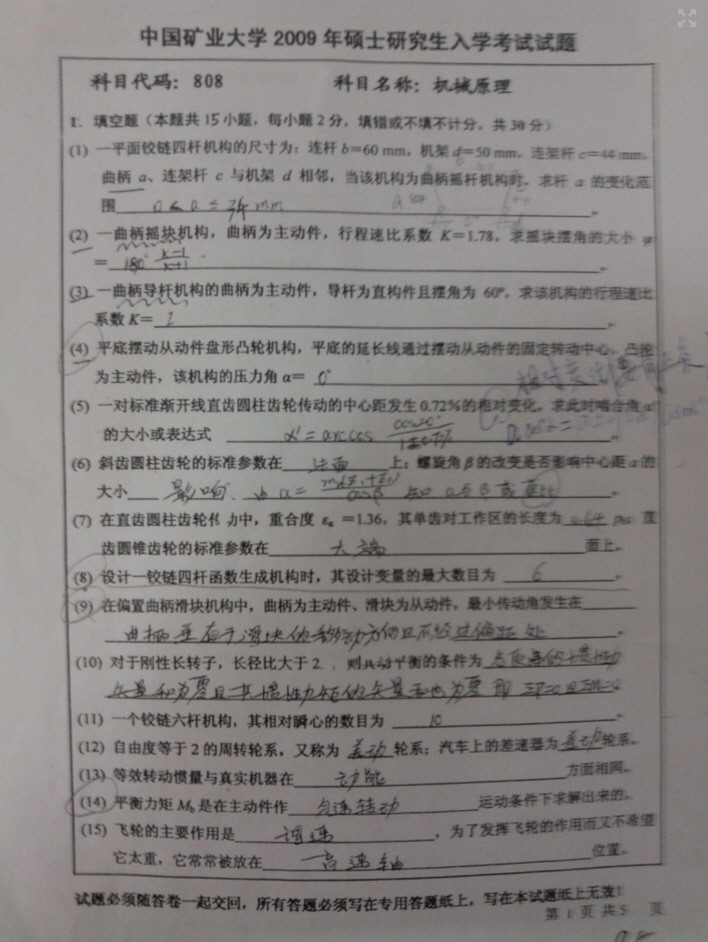 中国矿业大学 2009 年硕士研究生入学考试试题
科目代码：808 科目名称：机械原理
I. 填空题（本题共 15 小题，每小题 2 分，填错或不填不计分，共 30 分）
(1) 一平面铰链四杆机构的尺寸为：连杆 b=60 mm，机架 d=50 mm，连架杆 c=44 mm，
曲柄 a、连架杆 c 与机架 d 相邻，当该机构为曲柄摇杆机构时，求杆 a 的变化范
围 0<a≤34mm 。
(2) 一曲柄摇块机构，曲柄为主动件，行程速比系数 K=1.78，求摇块摆角的大小 ψ
= 180° K-1/K+1 。
(3) 一曲柄导杆机构的曲柄为主动件，导杆为直构件且摆角为 60°，求该机构的行程速比
系数 K= 。
(4) 平底摆动从动件盘形凸轮机构，平底的延长线通过摆动从动件的固定转动中心，凸轮
为主动件，该机构的压力角 α= 0° 。
(5) 一对标准渐开线直齿圆柱齿轮传动的中心距发生 0.72%的相对变化，求此时啮合角 α'
的大小或表达式 α'=arccos
(6) 斜齿圆柱齿轮的标准参数在 法面 上；螺旋角 β 的改变是否影响中心距 a 的
大小 影响
(7) 在直齿圆柱齿轮传动中，重合度 εα =1.36，其单齿对工作区的长度为 直
齿圆锥齿轮的标准参数在 大端 面上。
(8) 设计一铰链四杆函数生成机构时，其设计变量的最大数目为 6 。
(9) 在偏置曲柄滑块机构中，曲柄为主动件、滑块为从动件，最小传动角发生在
曲柄垂直于滑块的移动方向且不经过偏距处 。
(10) 对于刚性长转子，长径比大于 2，则其动平衡的条件为 各质量的惯性力
矢量和为零且其惯性力矩的矢量和也为零 即
(11) 一个铰链六杆机构，其相对瞬心的数目为 10 。
(12) 自由度等于 2 的周转轮系，又称为 差动 轮系；汽车上的差速器为 差动 轮系。
(13) 等效转动惯量与真实机器在 动能 方面相同。
(14) 平衡力矩 Mb 是在主动件作 匀速转动 运动条件下求解出来的。
(15) 飞轮的主要作用是 调速 ，为了发挥飞轮的作用而又不希望
它太重，它常常被放在 高速轴 位置。
试题必须随答卷一起交回，所有答题必须写在专用答题纸上，写在本试题纸上无效！
第 1 页 共 5 页